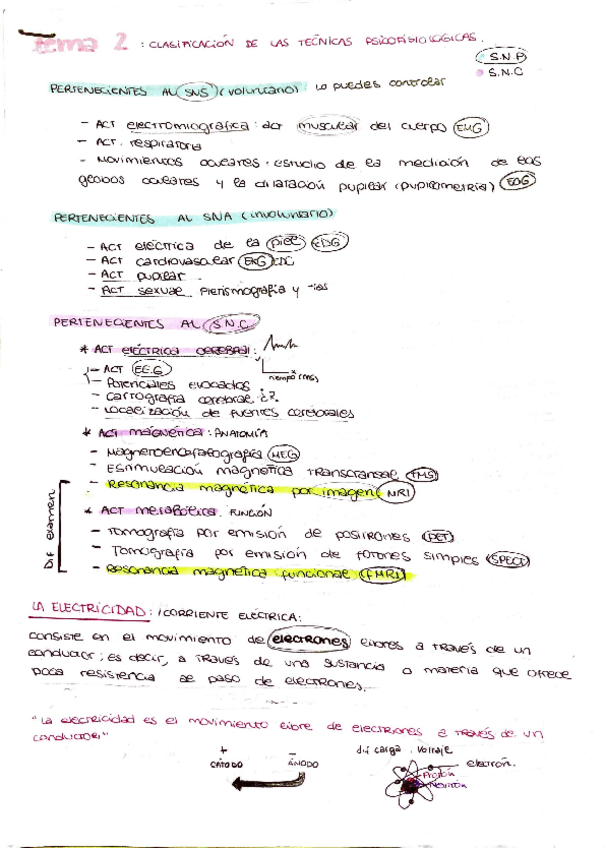 tema 2 : CLASIFICACIÓN DE LAS TECNICAS PSICOFISIOLÓGICAS.
S.N.P
S.N.C
PERTENECIENTES AL SNS (voluntario) lo puedes controlar
- ACT electromiográfica : act muscular del cuerpo EMG
- ACT. respiratoria
- Movimientos oculares : estudio de la medición de los
globos oculares y la dilatación pupilar (pupilometria) EOG
PERTENECIENTES AL SNA (involuntario)
- ACT eléctrica de la piel EDG
- ACT cardiovascular EKG EDC
- ACT pupilar
- ACT sexual pletismografia y
PERTENECIENTES AL S.N.C
* ACT eléctrica cerebral :
- ACT EEG
tiempo (ms)
- Potenciales evocados
- Cartografia cerebral ¿?
- Localización de fuentes cerebrales
* ACT magnética : ANATOMÍA
- Magnetoencefalografía MEG
- Estimulación magnética transcraneal TMS
- Resonancia magnética por imagen MRI
Dif examen
* ACT metabólica. FUNCIÓN
- Tomografía por emisión de positrones PET
- Tomografía por emisión de fotones simples SPECT
- Resonancia magnética funcional FMRI
LA ELECTRICIDAD : / CORRIENTE ELÉCTRICA :
Consiste en el movimiento de electrones libres a través de un
conductor ; es decir, a través de una sustancia o materia que ofrece
poca resistencia al paso de electrones.
"La electricidad es el movimiento libre de electrones a través de un
conductor"
+ -
CÁTODO ÁNODO
dif carga . Voltaje
electrón.
Protón
Neutrón